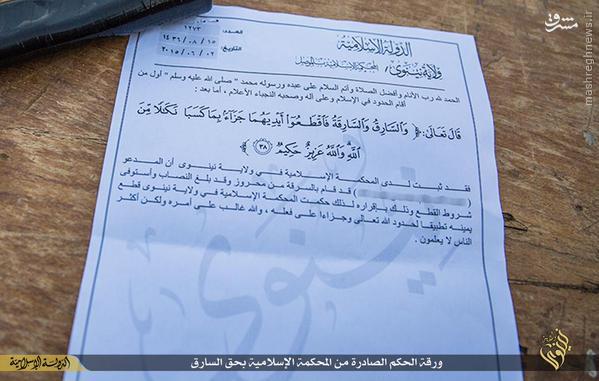 مشرق
mashreghnews.ir
الدولة الإسلامية
ولاية نينوى
المحكمة الإسلامية بالموصل
العدد: ١٢٧٣
١٤٣٦ / ٠٨ / ١٥
التاريخ: ٢٠١٥ / ٠٦ / ٠٢
الحمد لله رب الأنام وأفضل الصلاة وأتم السلام على عبده ورسوله محمد " صلى الله عليه وسلم " أول من
أقام الحدود في الإسلام وعلى آله وصحبه النجباء الأعلام ، أما بعد :
قَالَ تَعَالَىٰ: ﴿ وَالسَّارِقُ وَالسَّارِقَةُ فَاقْطَعُوا أَيْدِيَهُمَا جَزَاءً بِمَا كَسَبَا نَكَالًا مِّنَ
اللَّهِ وَاللَّهُ عَزِيزٌ حَكِيمٌ ﴿٣٨﴾
فقد ثبت لدى المحكمة الإسلامية في ولاية نينوى أن المدعو
( ) قد قام بالسرقة من محروز وقد بلغ النصاب وأستوفى
شروط القطع وذلك بإقراره لذلك حكمت المحكمة الإسلامية في ولاية نينوى قطع
يمينه تطبيقا لحدود الله تعالى وجزاءا على فعلته ، والله غالب على أمره ولكن أكثر
الناس لا يعلمون .
نينوى
ورقة الحكم الصادرة من المحكمة الإسلامية بحق السارق
الدولة الإسلامية
نينوى